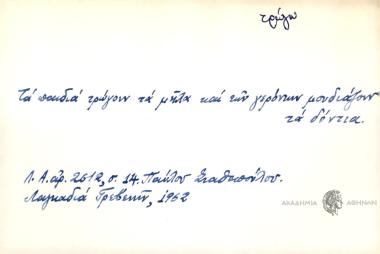 τρώγω
Τά παιδιά τρώγουν τά μῆλα καί τῶν γερόντων μουδιάζουν
τά δόντια.
Λ. Α. ἀρ. 2612, σ. 14. Παύλου Σταθοπούλου.
Λαγκαδιά Γρεβενῶν, 1962
ΑΚΑΔΗΜΙΑ ΑΘΗΝΩΝ